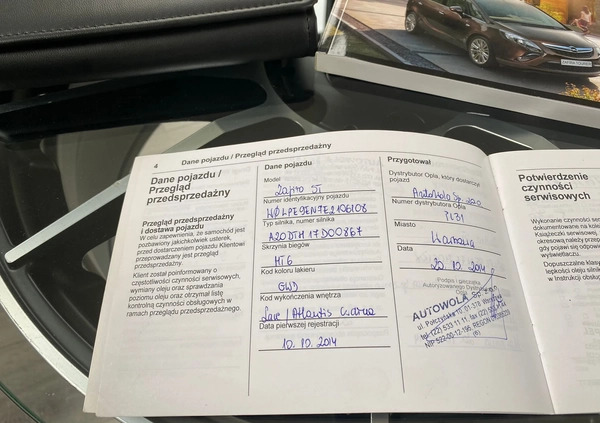 ZAFIRA TOURER
4 Dane pojazdu / Przegląd przedsprzedażny
Dane pojazdu /
Przegląd
przedsprzedażny
Przegląd przedsprzedażny
i dostawa pojazdu
W celu zapewnienia, że samochód jest
pozbawiony jakichkolwiek usterek,
przed dostarczeniem pojazdu Klientowi
przeprowadzany jest przegląd
przedsprzedażny.
Klient został poinformowany o
częstotliwości czynności serwisowych,
wymiany oleju oraz sprawdzania
poziomu oleju oraz otrzymał listę
kontrolną czynności obsługowych w
ramach przeglądu przedsprzedażnego.
Dane pojazdu
Model
Zafira ST
Numer identyfikacyjny pojazdu
W0LPE9EN7E2106108
Typ silnika, numer silnika
A20DTH 17D00867
Skrzynia biegów
MT6
Kod koloru lakieru
GWD
Kod wykończenia wnętrza
/ Atlantis czarna
Data pierwszej rejestracji
10. 10. 2014
Przygotował
Dystrybutor Opla, który dostarczył
pojazd
AutoWola Sp. z o.o
Numer dystrybutora Opla
PL31
Miasto
Warszawa
Data
20. 10. 2014
Podpis i pieczątka
Autoryzowanego Dystrybutora
Opla
AUTOWOLA Sp. z o.o.
ul. Połczyńska 10, 01-378 Warszawa
tel. (22) 533 11 11, fax (22)
NIP 522-00-12-198, REGON
(6)
Potwierdzenie
czynności
serwisowych
Wykonanie czynności
dokumentowane na
Książeczki serwisowej.
okresową należy
gdy pojawi się
wyświetlaczu.
Dopuszczalne
lepkości oleju
w Instrukcji obsługi